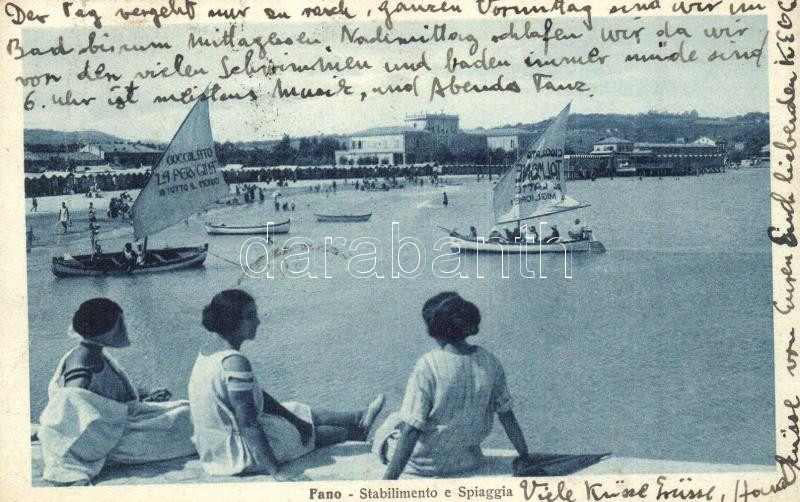 Der Tag vergeht nur zu rasch, ganzen Vormittag sind wir im
Bad bis zum Mittagessen Nachmittag schlafen wir da wir
von den vielen Schwimmen und baden immer müde sind
6. Uhr ist meistens Musik, und Abends Tanz.
CIOCCOLATO
LA PERUGINA
IN TUTTO IL MONDO
CIOCCOLATO
TALMONE
E IL MIGLIORE
darabanth
Fano - Stabilimento e Spiaggia
Viele Küsse Grüsse, Hand
Küsse von Euren Euch liebenden